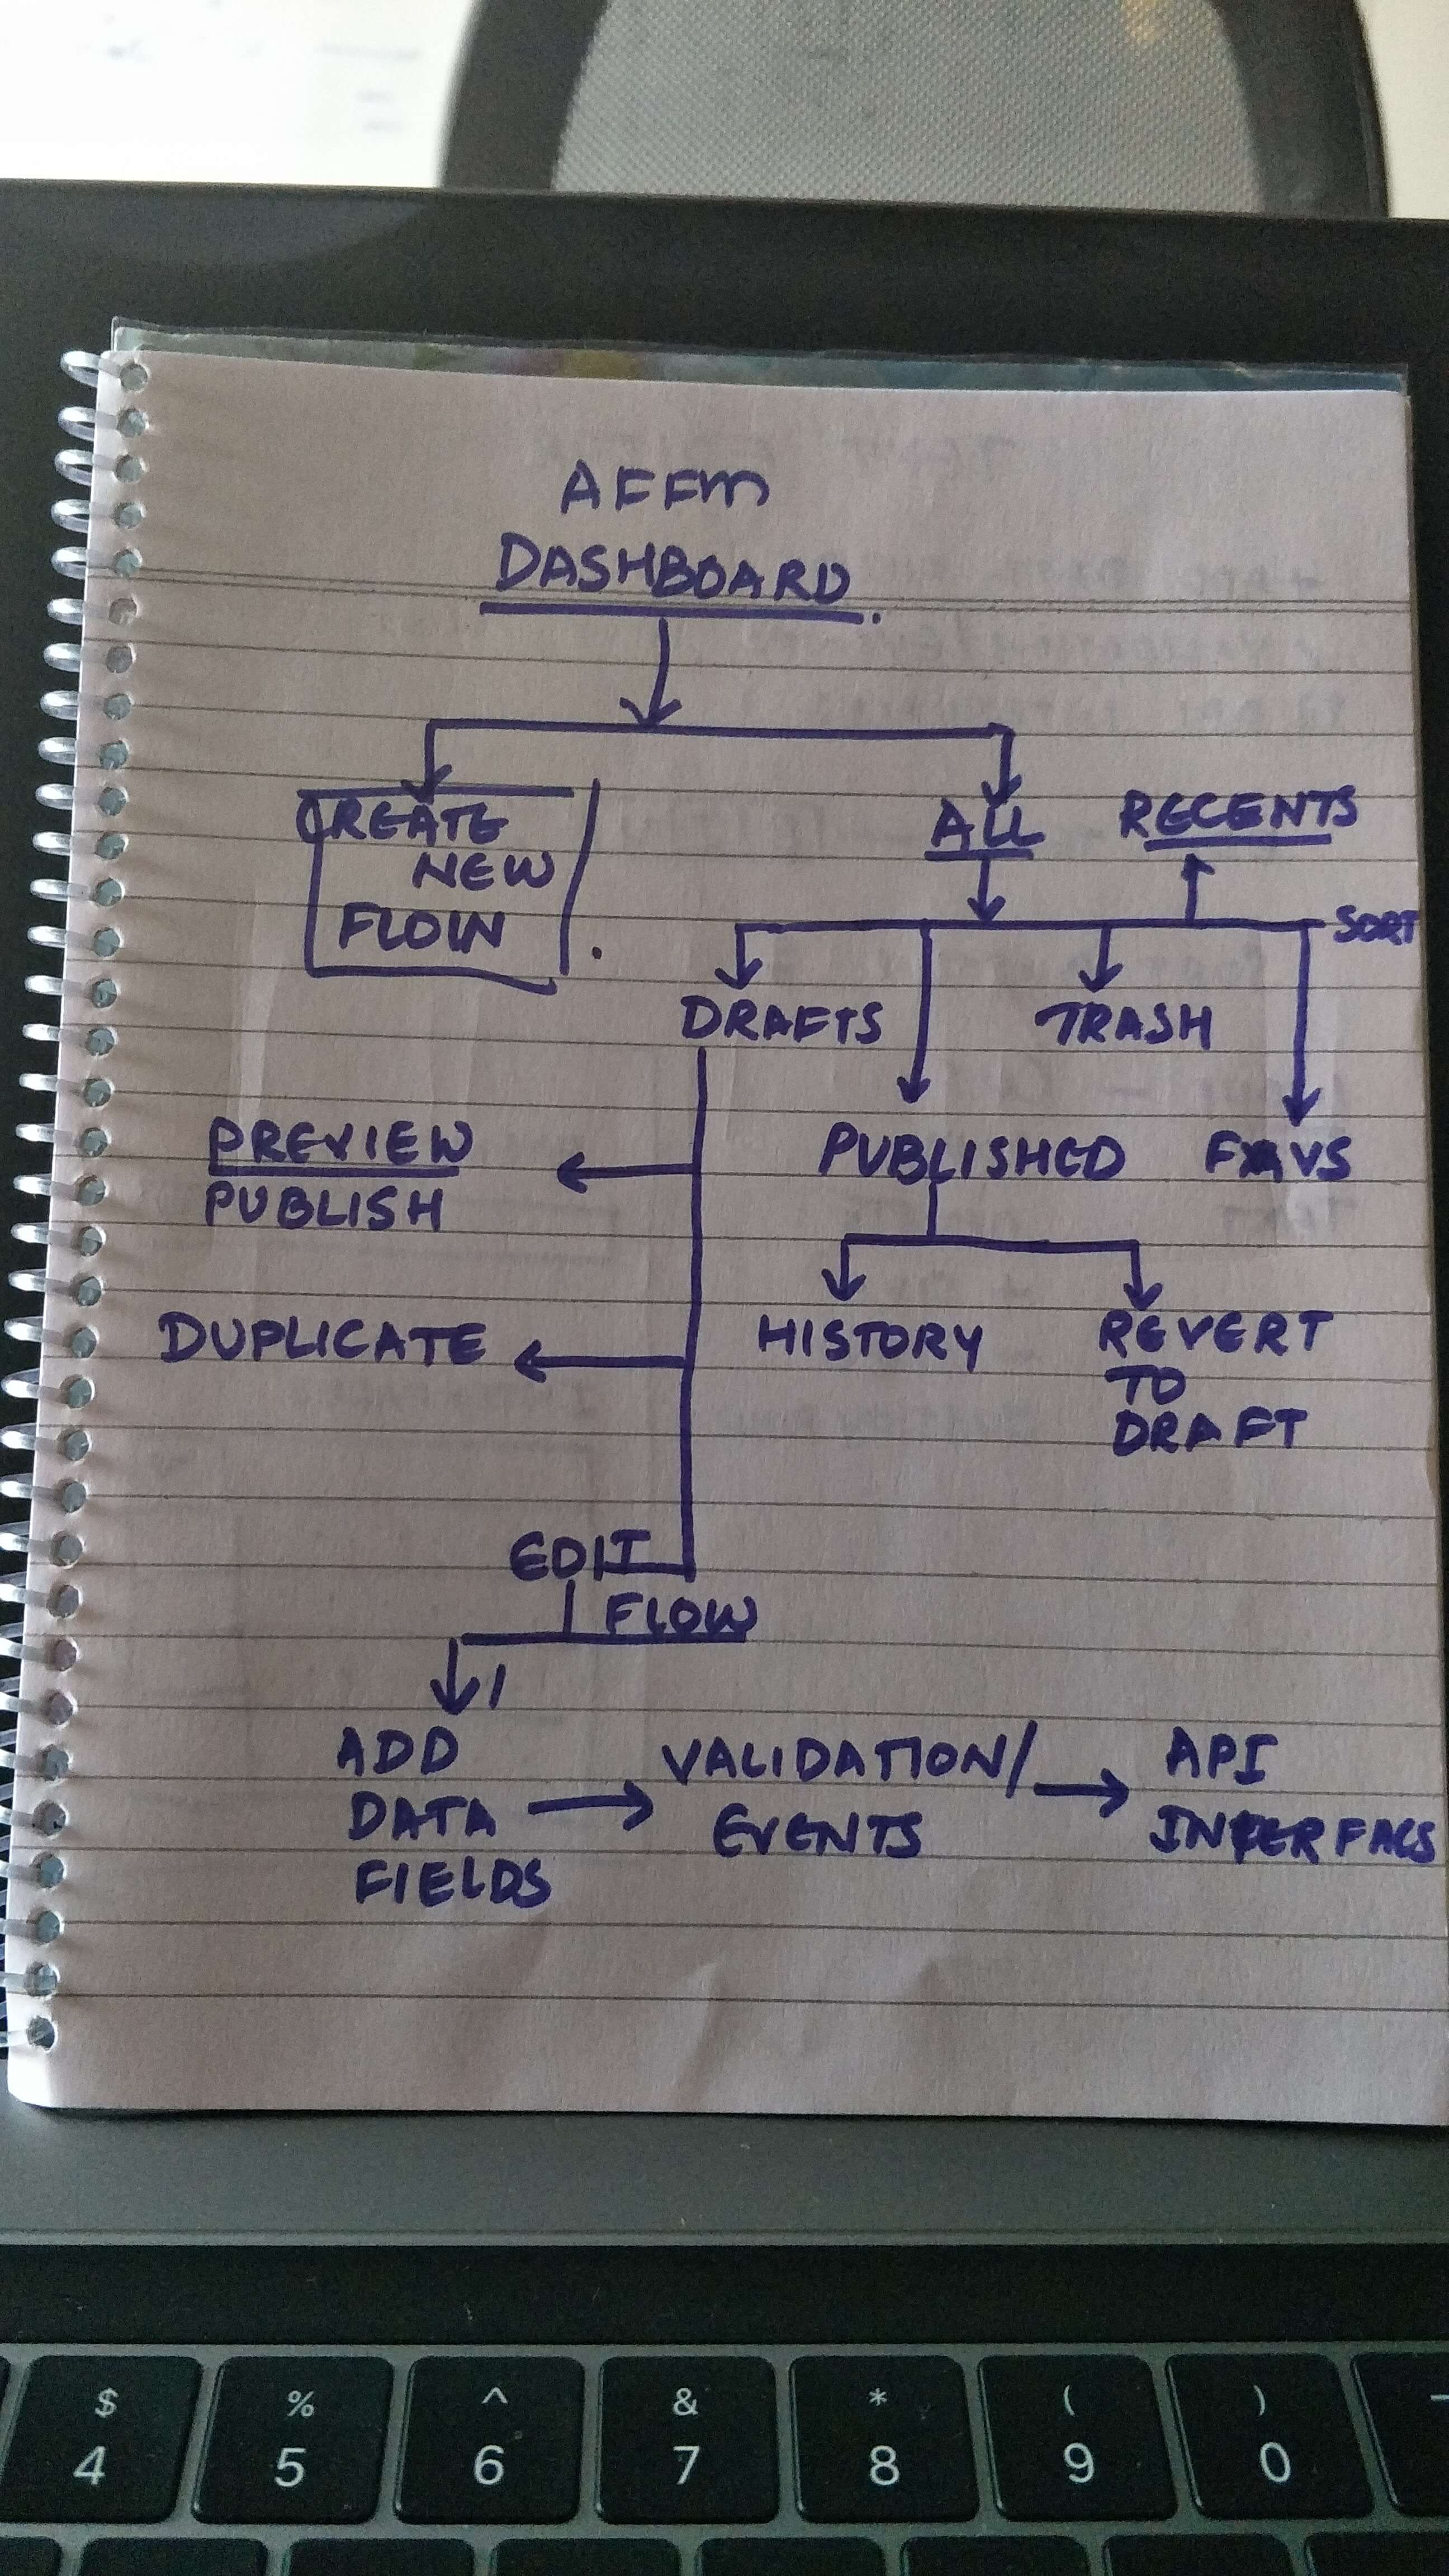 AFFM
DASHBOARD.
CREATE
NEW
FLOW
ALL
RECENTS
SORT
DRAFTS
TRASH
PUBLISHED
FAVS
PREVIEW
PUBLISH
HISTORY
REVERT
TO
DRAFT
DUPLICATE
EDIT
FLOW
ADD
DATA
FIELDS
VALIDATION/
EVENTS
API
$ % ^ & * ( )
4 5 6 7 8 9 0